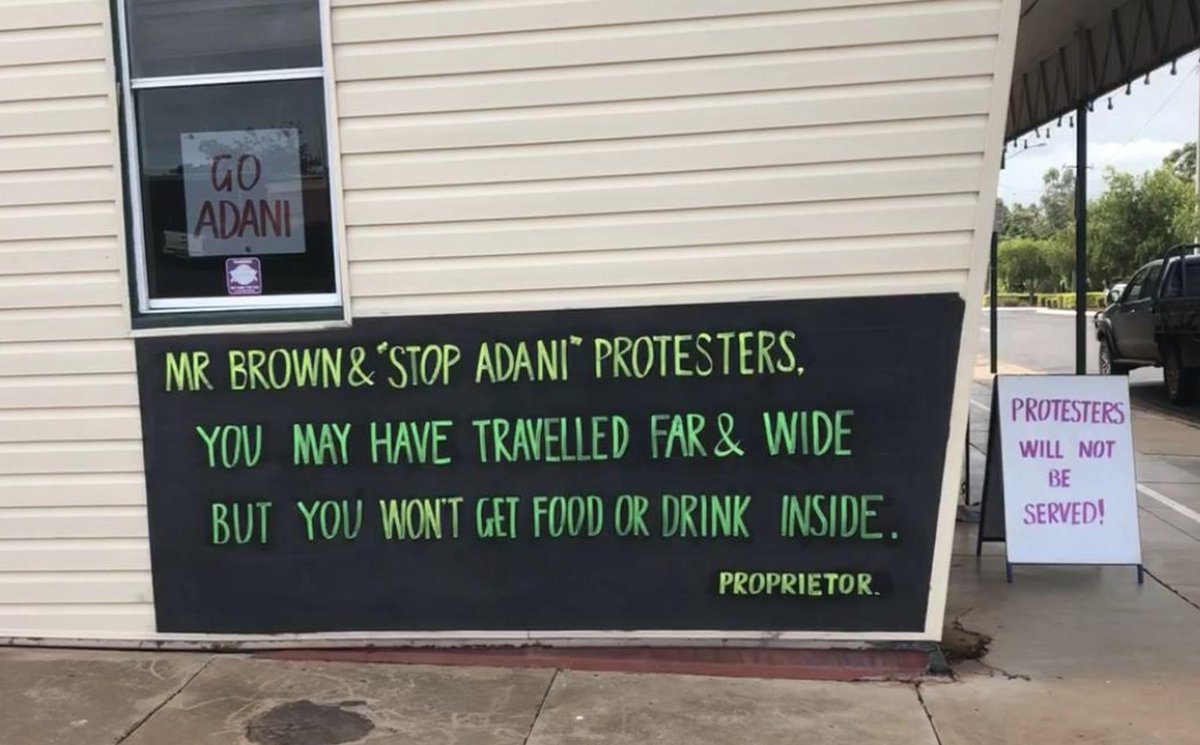 GO
ADANI
MR BROWN & "STOP ADANI" PROTESTERS,
YOU MAY HAVE TRAVELLED FAR & WIDE
BUT YOU WON'T GET FOOD OR DRINK INSIDE.
PROPRIETOR.
PROTESTERS
WILL NOT
BE
SERVED!